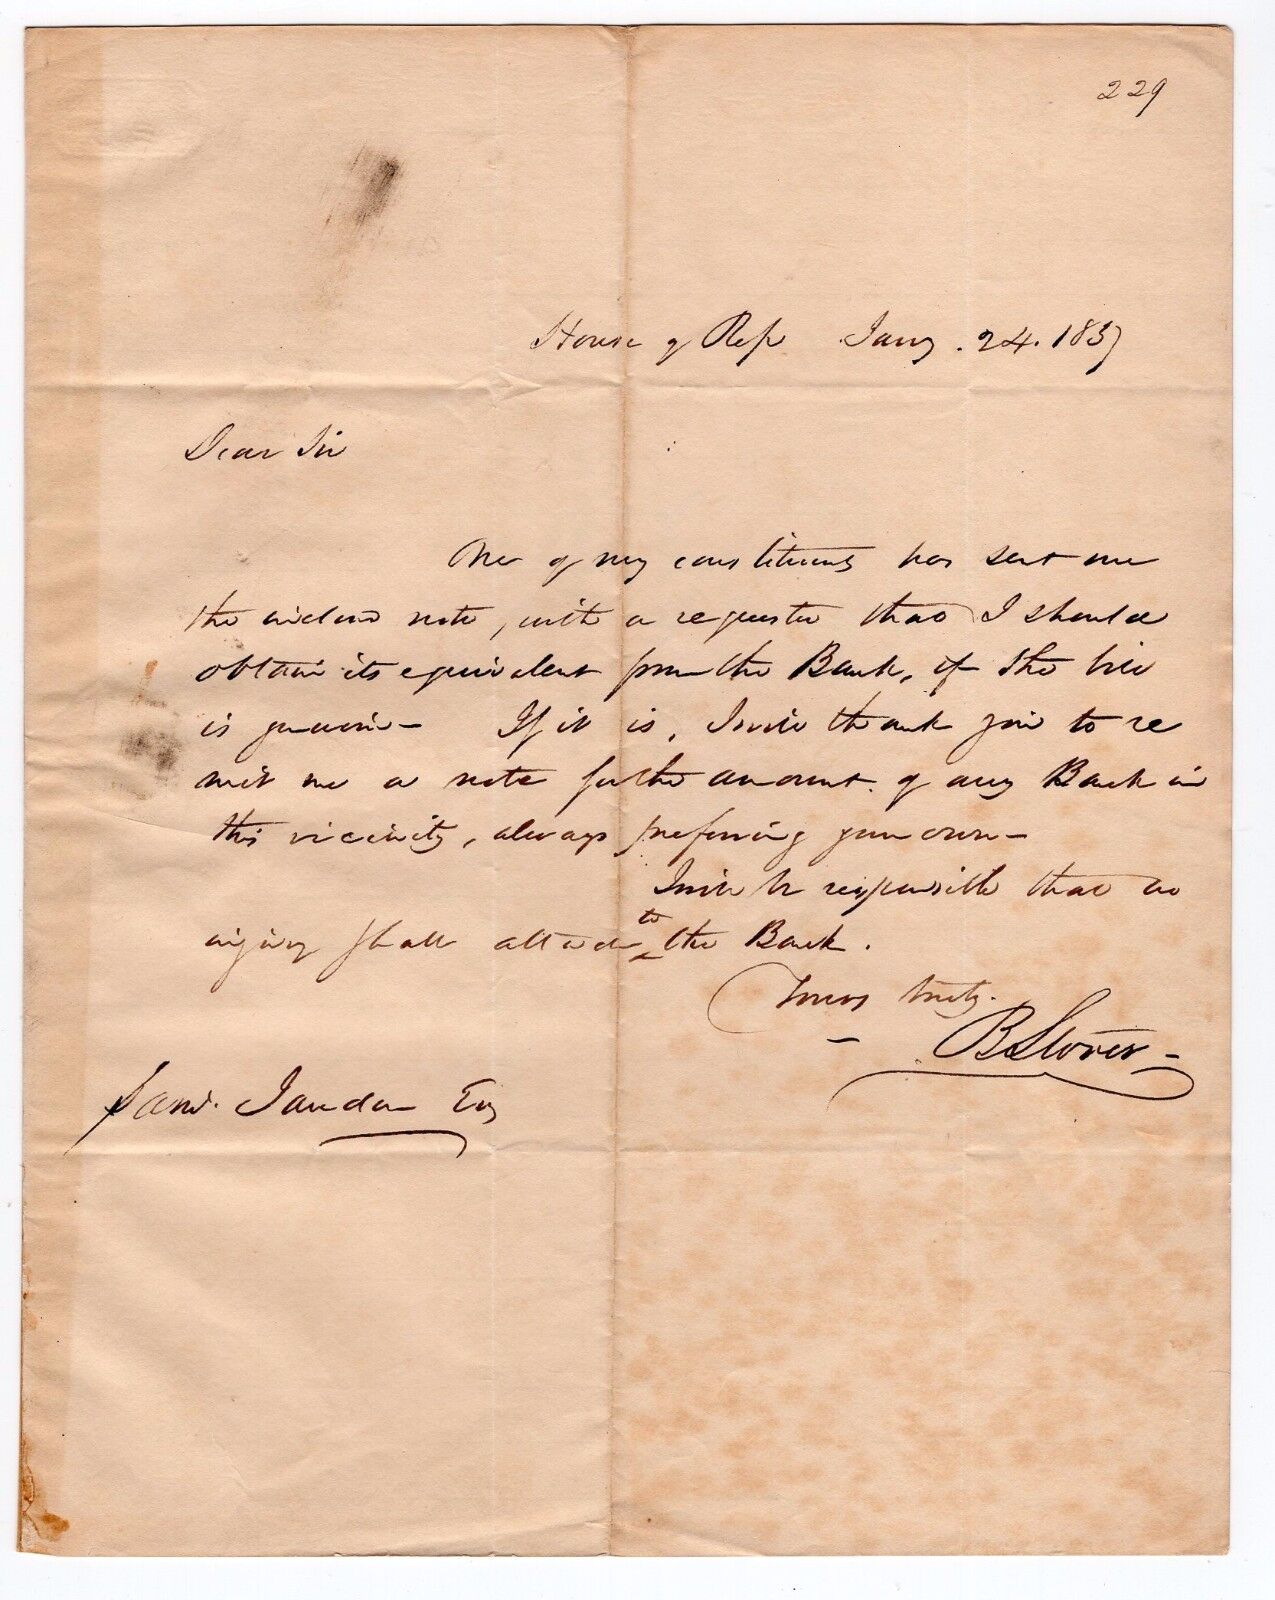 229
House of Rep Jany. 24. 1837
Dear Sir
One of my constituents has sent me
the inclosed note, with a request that I should
obtain its equivalent from the Bank, if the bill
is genuine – If it is, I will thank you to re
mit me a note for the amount of any Bank in
this vicinity, always preferring your own –
I will be responsible that no
injury shall attend to the Bank.
Yours truly.
B Storer –
Saml. Jaudon Esq